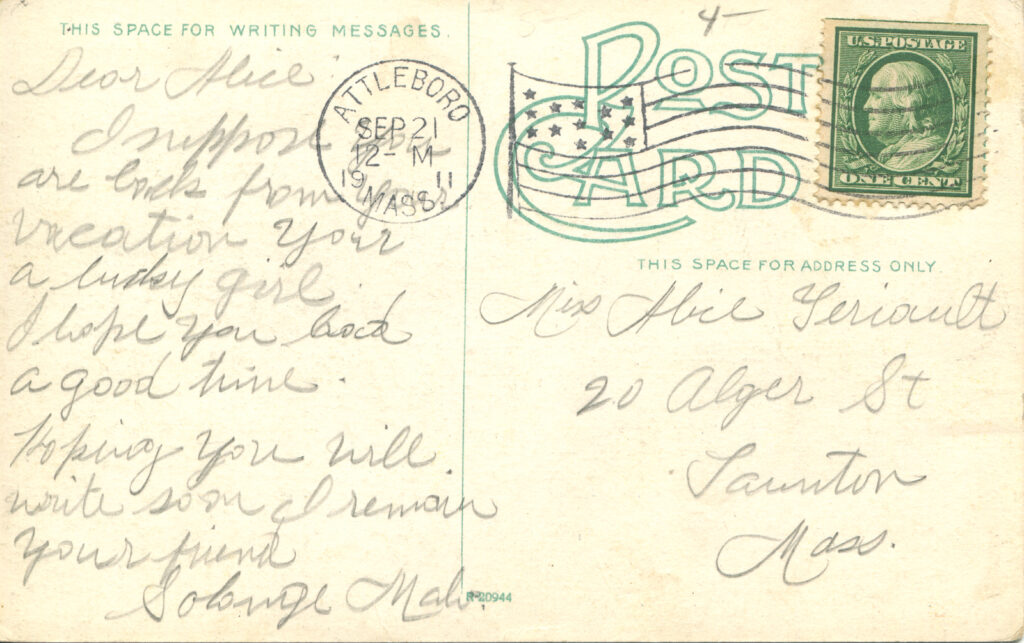 THIS SPACE FOR WRITING MESSAGES.
Dear Alice
I suppose you
are back from your
vacation your
a lucky girl.
I hope you had
a good time.
Hoping you will
write soon I remain
your friend
Solange
ATTLEBORO
SEP 21
12- M
1911
MASS.
4-
POST
CARD
U.S. POSTAGE
ONE CENT
THIS SPACE FOR ADDRESS ONLY.
Miss Alice Teriault
20 Alger St
Taunton
Mass.
R-20944